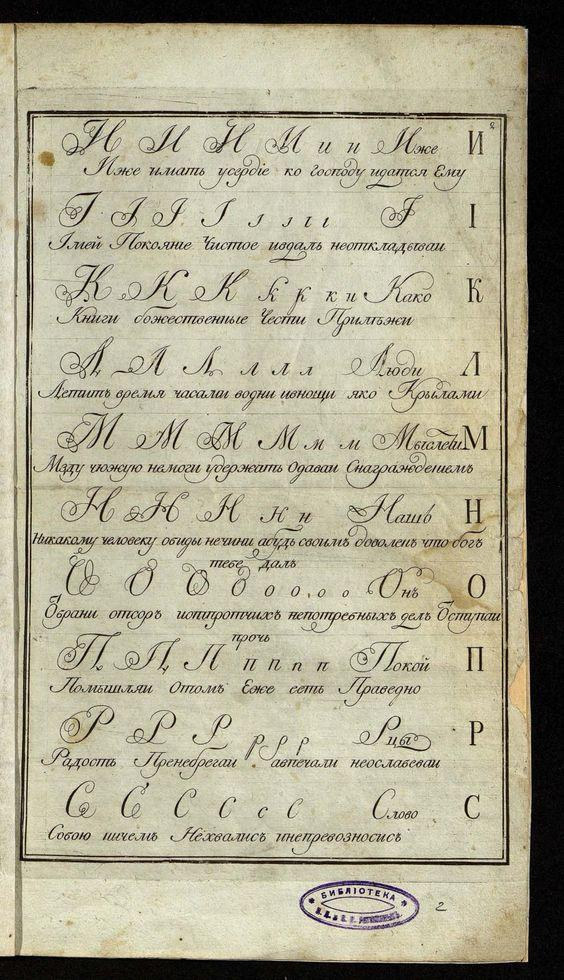 И И И И и и Иже И
Иже имать усердiе ко господу идатся Ему
I I I I ı ı ı ı I I
Iмей Покоянiе Чистое ивдаль неоткладываи
К К К к к к и Како К
Книги божественные Чести Прилѣжи
Л Л Л л л л Люди Л
Летитъ время часами водни ивнощи яко Крылами
М М М М м м Мыслѣти М
Мзду чюжую немоги удержать Одаваи Снаграждениемъ
Н Н Н н н Нашъ Н
Никакому человеку обиды нечини абудь своимъ доволенъ что богъ
тебе далъ
О О О О о о о о Онъ О
Обрани отсоръ иотпротчихъ непотребныхъ делъ Оступаи
прочь
П П П п п п п Покой П
Помышляи Отомъ Еже есть Праведно
Р Р Р р р р Рцы Р
Радость Пренебрегаи авпечали неослабеваи
С С С С с С Слово С
Собою ничемъ Нехвалисъ инепревозносисъ
БИБЛIОТЕКА
2